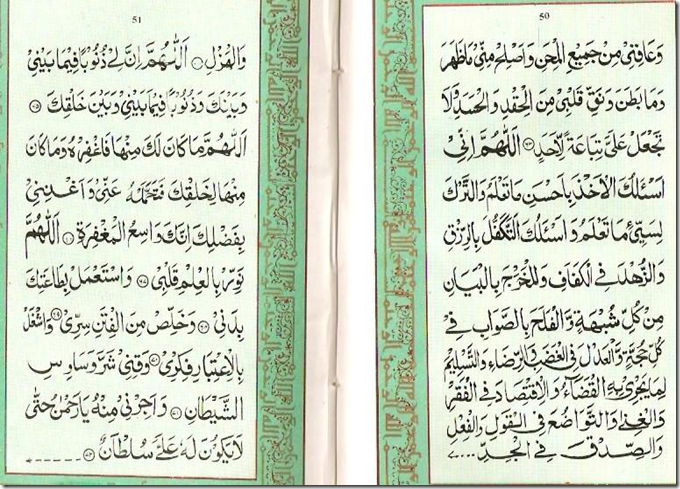 50
وَعَافِنِيْ مِنْ جَمِيْعِ الْمِحَنِ وَاَصْلِحْ مِنِّيْ مَا ظَهَرَ
وَمَا بَطَنَ وَنَقِّ قَلْبِيْ مِنَ الْحِقْدِ وَالْحَسَدِ وَلَا
تَجْعَلْ عَلَيَّ تِبَاعَةً لِّاَحَدٍ اَللّٰهُمَّ اِنِّيْ
اَسْئَلُكَ الْاَخْذَ بِاَحْسَنِ مَا تَعْلَمُ وَالتَّرْكَ
لِسَيِّئِ مَا تَعْلَمُ وَاَسْئَلُكَ التَّكَفُّلَ بِالرِّزْقِ
وَالزُّهْدَ فِي الْكَفَافِ وَالْمَخْرَجَ بِالْبَيَانِ
مِنْ كُلِّ شُبْهَةٍ وَّالْفَلَجَ بِالصَّوَابِ فِيْ
كُلِّ حُجَّةٍ وَّالْعَدْلَ فِي الْغَضَبِ وَالرِّضَاءِ وَالتَّسْلِيْمَ
لِمَا يَجْرِيْ بِهِ الْقَضَآءُ وَالْاِقْتِصَادَ فِي الْفَقْرِ
وَالْغِنٰى وَالتَّوَاضُعَ فِي الْقَوْلِ وَالْفِعْلِ
وَالصِّدْقَ فِي الْجِدِّ ....
51
وَالْهَزْلِ اَللّٰهُمَّ اِنَّ لِيْ ذُنُوْبًا فِيْمَا بَيْنِيْ
وَبَيْنَكَ وَذُنُوْبًا فِيْمَا بَيْنِيْ وَبَيْنَ خَلْقِكَ
اَللّٰهُمَّ مَا كَانَ لَكَ مِنْهَا فَاغْفِرْهُ وَمَا كَانَ
مِنْهَا لِخَلْقِكَ فَتَحَمَّلْهُ عَنِّيْ وَاَغْنِنِيْ
بِفَضْلِكَ اِنَّكَ وَاسِعُ الْمَغْفِرَةِ اَللّٰهُمَّ
نَوِّرْ بِالْعِلْمِ قَلْبِيْ وَاسْتَعْمِلْ بِطَاعَتِكَ
بَدَنِيْ وَخَلِّصْ مِنَ الْفِتَنِ سِرِّيْ وَاشْغَلْ
بِالْاِعْتِبَارِ فِكْرِيْ وَقِنِيْ شَرَّ وَسَاوِسِ
الشَّيْطَانِ وَاَجِرْنِيْ مِنْهُ يَا رَحْمٰنُ حَتّٰى
لَا يَكُوْنَ لَهٗ عَلَيَّ سُلْطَانٌ